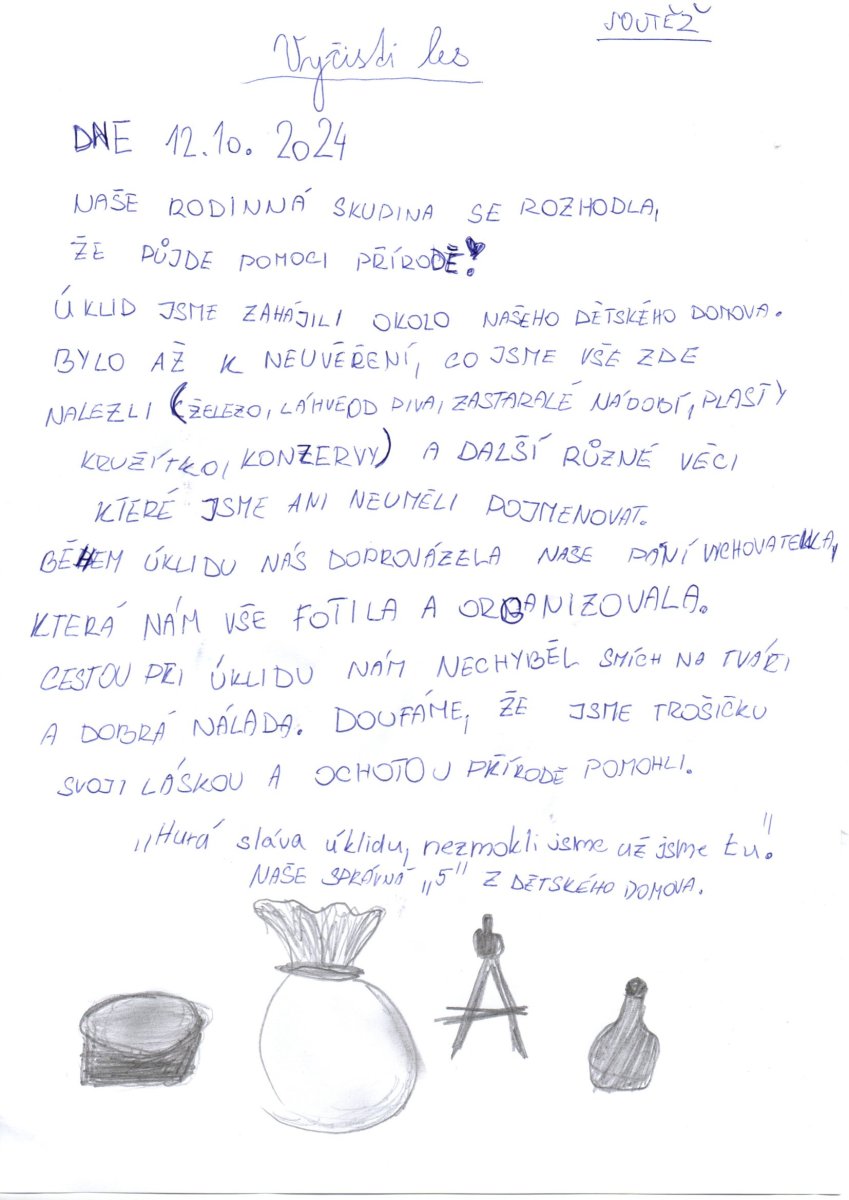 SOUTĚŽ
Vyčisti les
DNE 12.10. 2024
NAŠE RODINNÁ SKUPINA SE ROZHODLA,
ŽE PŮJDE POMOCI PŘÍRODĚ!
ÚKLID JSME ZAHÁJILI OKOLO NAŠEHO DĚTSKÉHO DOMOVA.
BYLO AŽ K NEUVĚŘENÍ, CO JSME VŠE ZDE
NALEZLI (ŽELEZO, LÁHVE OD PIVA, ZASTARALÉ NÁDOBÍ, PLASTY
KRUŽÍTKO, KONZERVY) A DALŠÍ RŮZNÉ VĚCI
KTERÉ JSME ANI NEUMĚLI POJMENOVAT.
BĚHEM ÚKLIDU NÁS DOPROVÁZELA NAŠE PANÍ VYCHOVATELKA,
KTERÁ NÁM VŠE FOTILA A ORGANIZOVALA.
CESTOU PŘI ÚKLIDU NÁM NECHYBĚL SMÍCH NA TVÁŘI
A DOBRÁ NÁLADA. DOUFÁME, ŽE JSME TROŠIČKU
SVOJI LÁSKOU A OCHOTOU PŘÍRODĚ POMOHLI.
„Hurá sláva úklidu, nezmokli jsme už jsme tu."
NAŠE SPRÁVNÁ „5" Z DĚTSKÉHO DOMOVA.